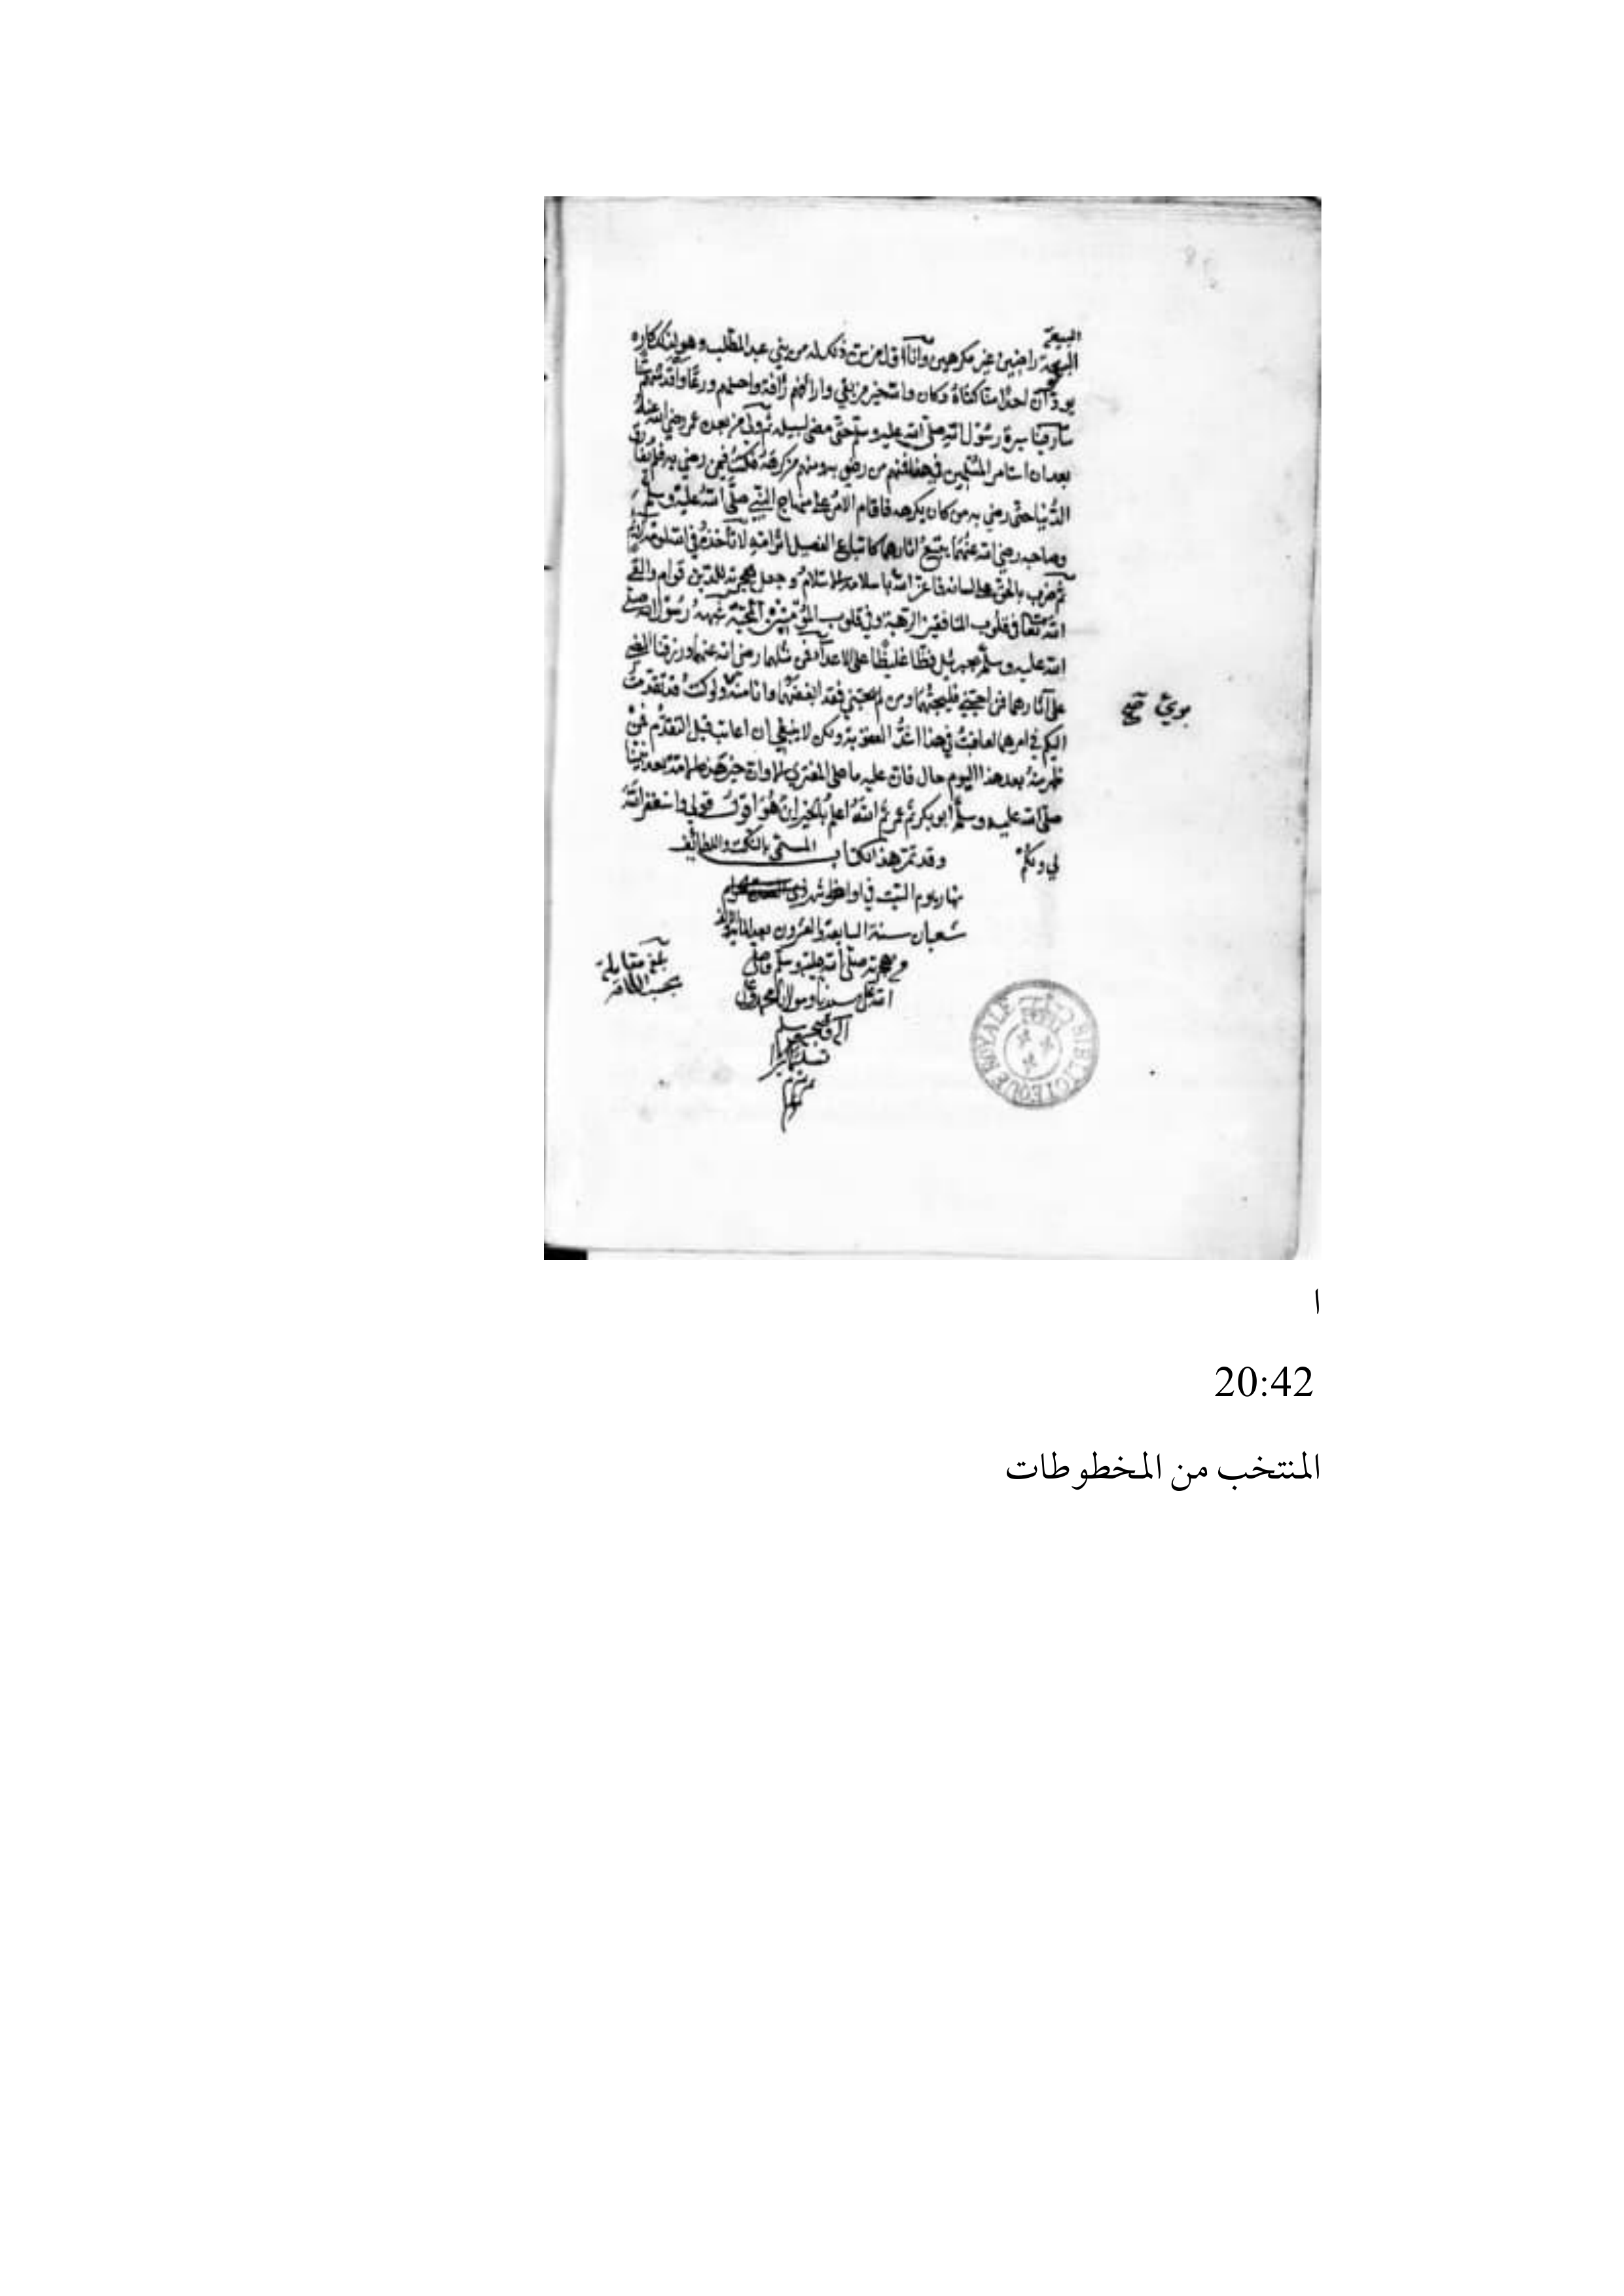 البيعة
البيعة راضين غير مكرهين وانا اول من سن ذلك له من بني عبد المطلب وهو لذلك كاره
يود ان احدا منا كفاه وكان والله خير من بقي واراٴفهم رٴافة واحسنهم ورعا واقدمهم
سار فينا سيرة رسول الله صلى الله عليه وسلم حتى مضى لسبيله ثم ولى من بعده عمر رضي الله عنه
بعد ان استامر المسلمين في هذا فمنهم من رضي به ومنهم من كرهه فكنت فيمن رضي به فلم يفارق
الدنيا حتى رضي به من كان يكرهه فاقام الامر على منهاج النبي صلى الله عليه وسلم
وصاحبه رضي الله عنهما يتبع اثارهما كاتباع الفصيل اثر امه لا تأخذه في الله لومة لائم
ثم ضرب بالحق على لسانه فاعز الله باسلامه الاسلام وجعل هجرته للدين قوام والقى
الله تعالى في قلوب المنافقين الرهبة وفي قلوب المؤمنين المحبة شبهه رسول الله صلى
الله عليه وسلم بجبريل فظا غليظا على الاعداء فمن مثلهما رضي الله عنهما ورزقنا المضي
على آثارهما فمن احبني فليحبهما ومن لم يحبني فقد ابغضهما وانا منه ولو كنت قد تقدمت
اليكم في امرهما لعاقبت في هذا اشد العقوبة ولكن لا ينبغي ان اعاقب قبل التقدم فمن
ظهر منه بعد هذا اليوم حال فان عليه ما على المفتري الا وان خير هذه الامة بعد نبينا
صلى الله عليه وسلم أبو بكر ثم عمر ثم الله اعلم بالخير اين هو اقول قولي واستغفر الله
لي ولكم
وقد تم هذا الكتاب المسمى بالنكت واللطائف
نهار يوم السبت في اواخر شهر
شعبان سنة السابعة والعشرون بعد
هجرته صلى الله عليه وسلم وصلى
الله على سيدنا ومولانا محمد وعلى
آله وصحبه وسلم
تسليما كثيرا
بلغ مقابلة
بحسب الطاقة
BIBLIOTEQUE ROYALE
ا
20:42
المنتخب من المخطوطات